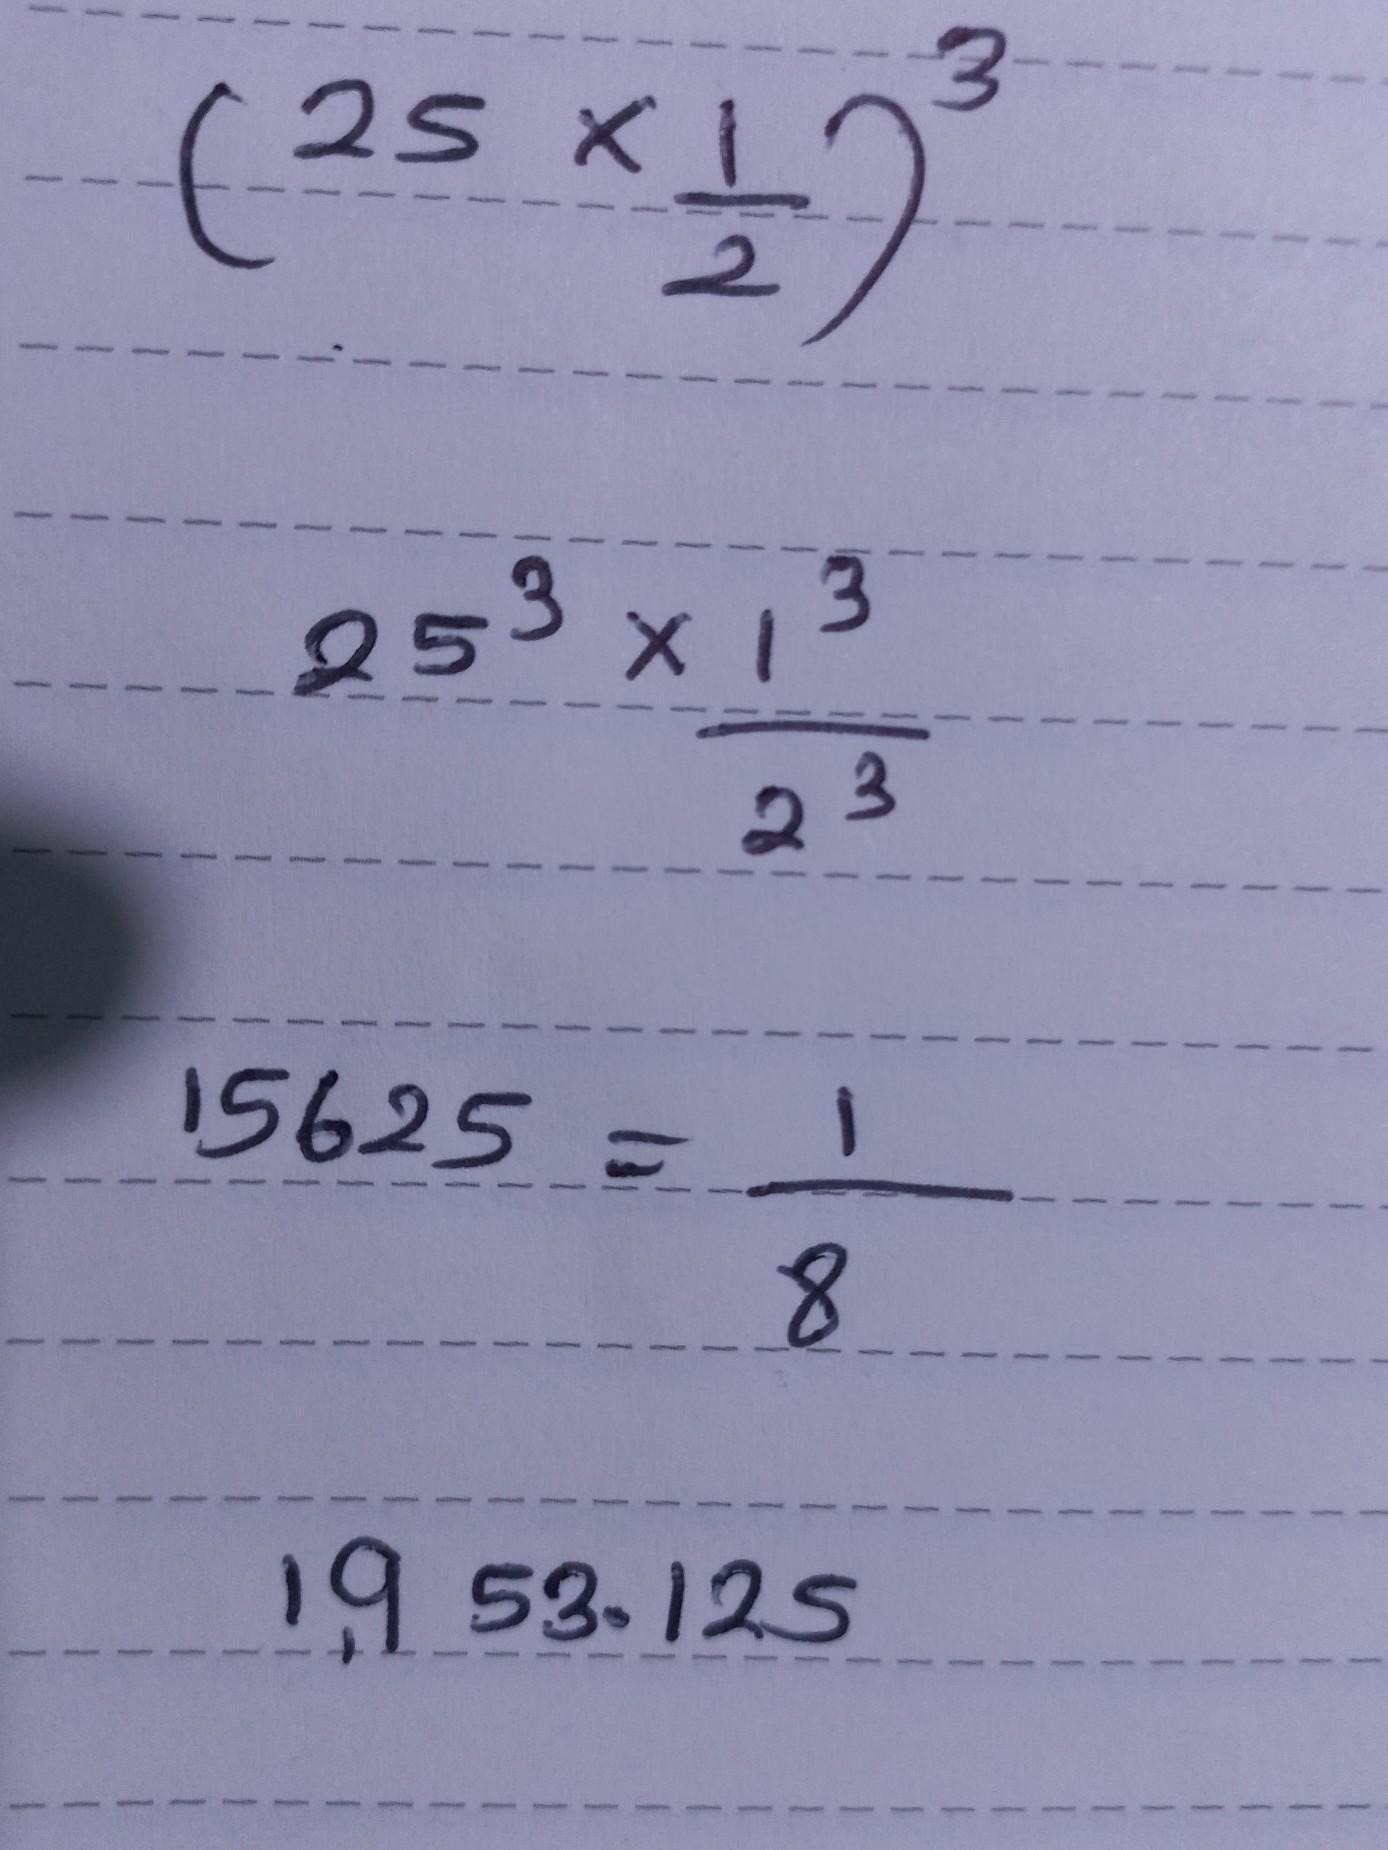 (25 × 1/2)³
25³ × 1³/2³
15625 = 1/8
1,953.125